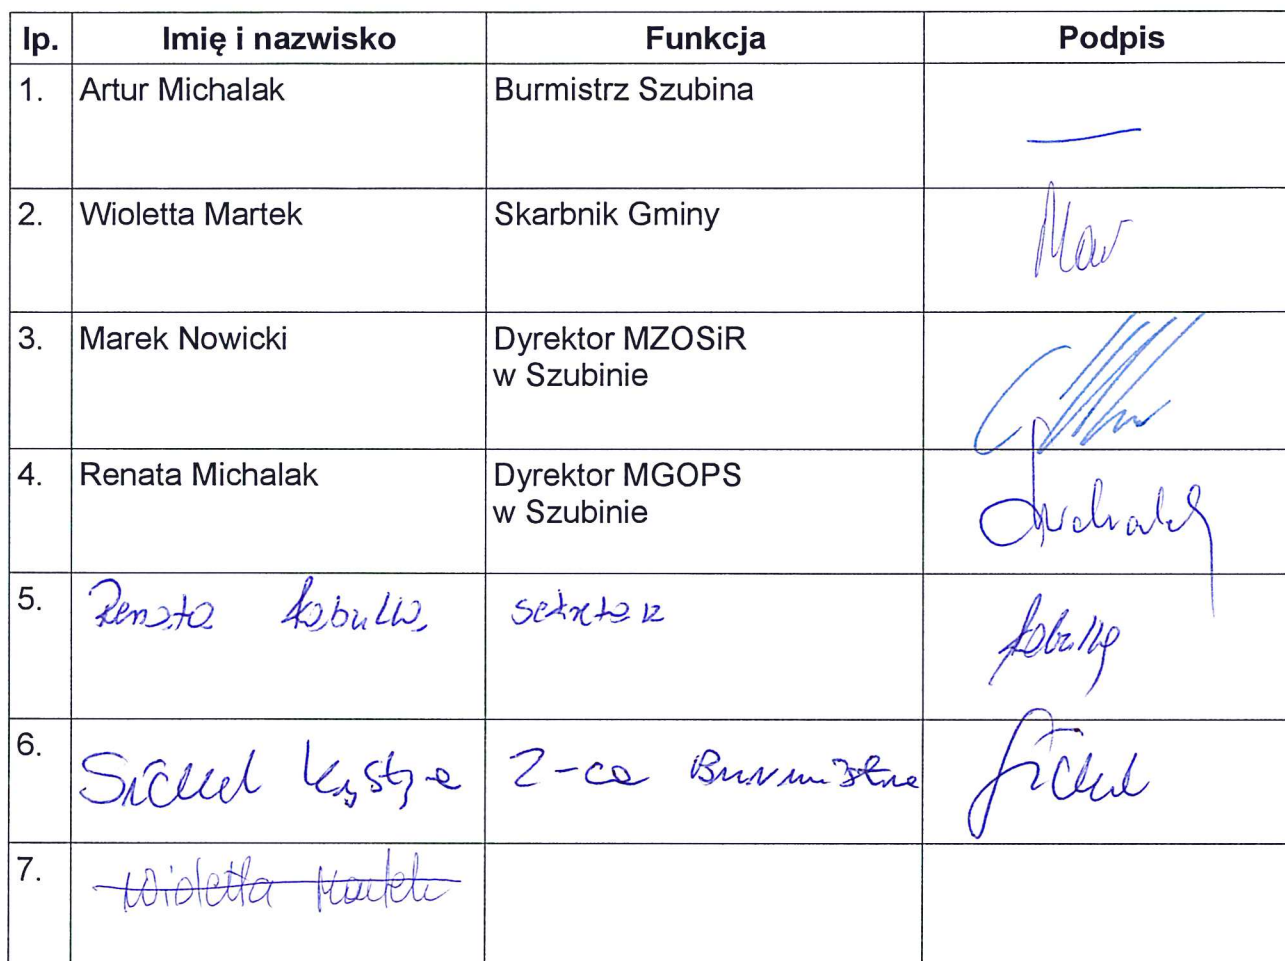 lp. Imię i nazwisko Funkcja Podpis
1. Artur Michalak Burmistrz Szubina
2. Wioletta Martek Skarbnik Gminy
3. Marek Nowicki Dyrektor MZOSiR
w Szubinie
4. Renata Michalak Dyrektor MGOPS
w Szubinie
5. Renata sekretarz
6. Z-ca Burmistrza
7. Wioletta Martek